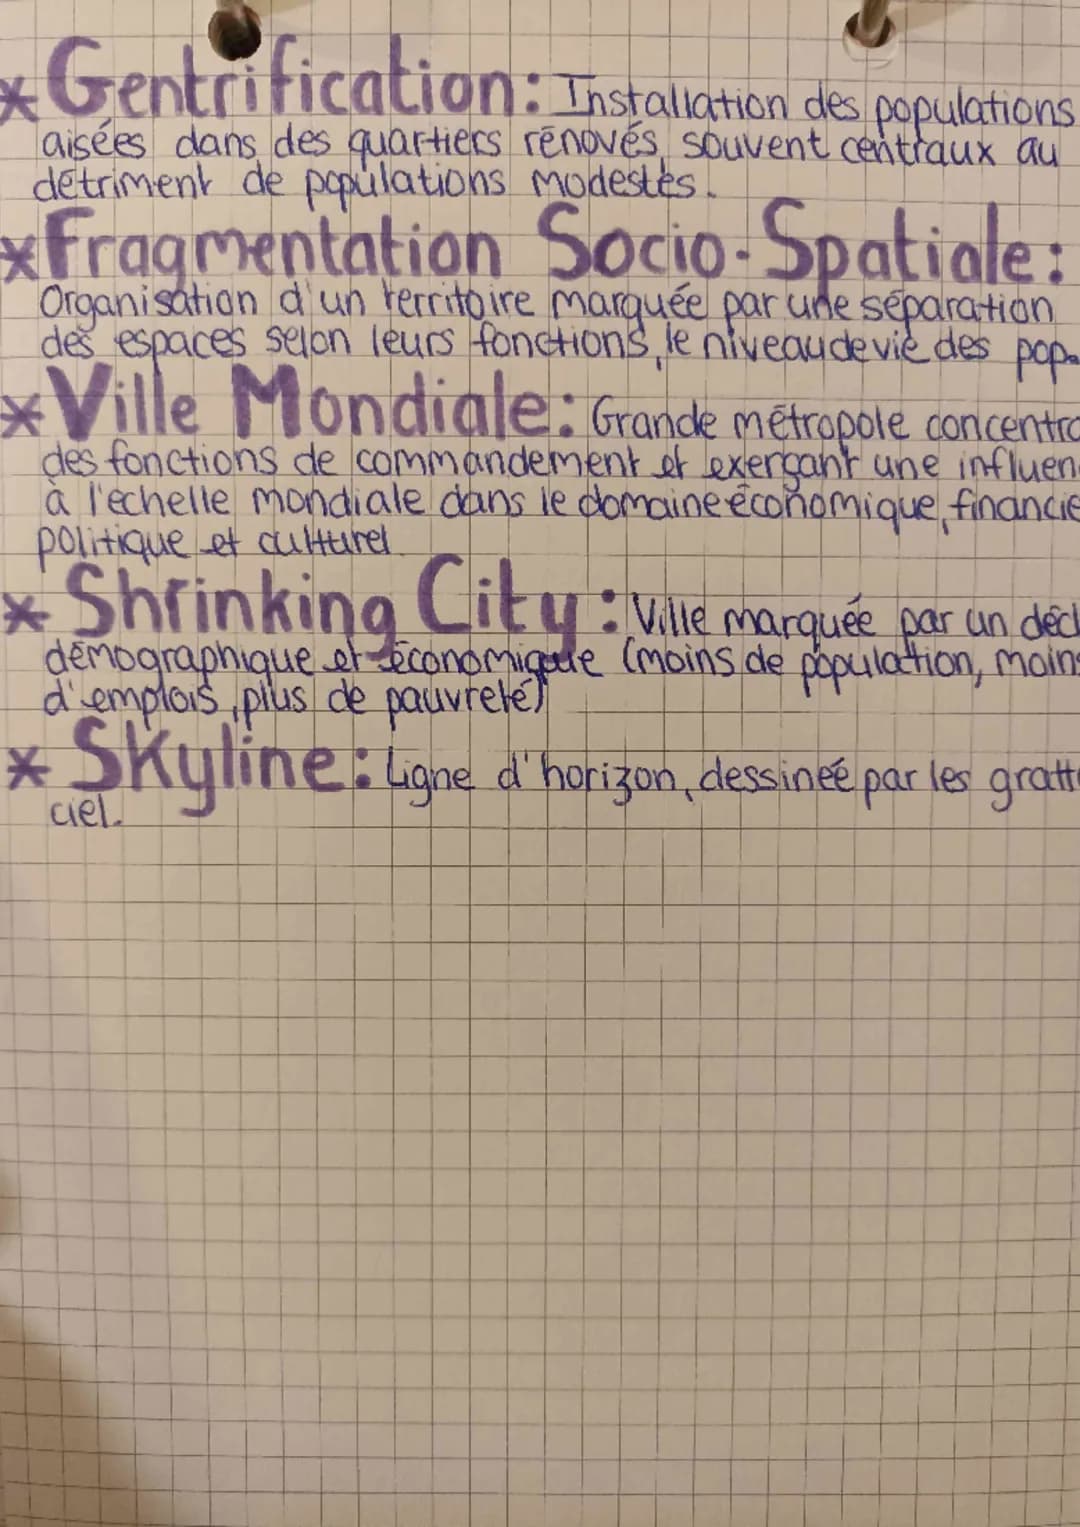 * Gentrification: Installation des populations
aisées dans des quartiers rénovés, souvent centraux au
détriment de populations modestes.
* Fragmentation Socio-Spatiale:
Organisation d'un territoire marquée par une séparation
des espaces selon leurs fonctions, le niveau de vie des pop.
* Ville Mondiale: Grande métropole concentra
des fonctions de commandement et exerçant une influen
à l'echelle mondiale dans le domaine économique, financie
politique et culturel
* Shrinking City: Ville marquée par un décl
démographique et économique (moins de population, moins
d'emplois, plus de pauvreté)
* Skyline: Ligne d'horizon, dessineé par les gratt
ciel.